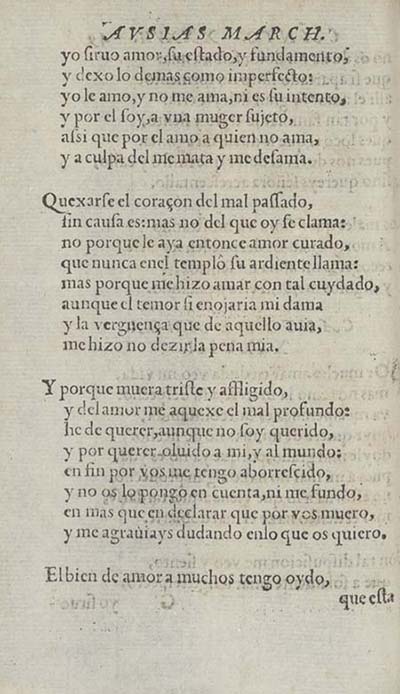 AVSIAS MARCH.
yo siruo amor, su estado, y fundamento,
y dexo lo demas como imperfecto:
yo le amo, y no me ama, ni es su intento,
y por el soy, a vna muger sujeto,
assi que por el amo a quien no ama,
y a culpa del me mata y me desama.
Quexarse el coraçon del mal passado,
sin causa es: mas no del que oy se clama:
no porque le aya entonce amor curado,
que nunca enel templò su ardiente llama:
mas porque me hizo amar con tal cuydado,
aunque el temor si enojaria mi dama
y la verguença que de aquello auia,
me hizo no dezir la pena mia.
Y porque muera triste y affligido,
y del amor me aquexe el mal profundo:
he de querer, aunque no soy querido,
y por querer oluido a mi, y al mundo:
en fin por vos me tengo aborrescido,
y no os lo pongo en cuenta, ni me fundo,
en mas que en declarar que por vos muero,
y me agrauiays dudando enlo que os quiero.
El bien de amor a muchos tengo oydo,
que esta